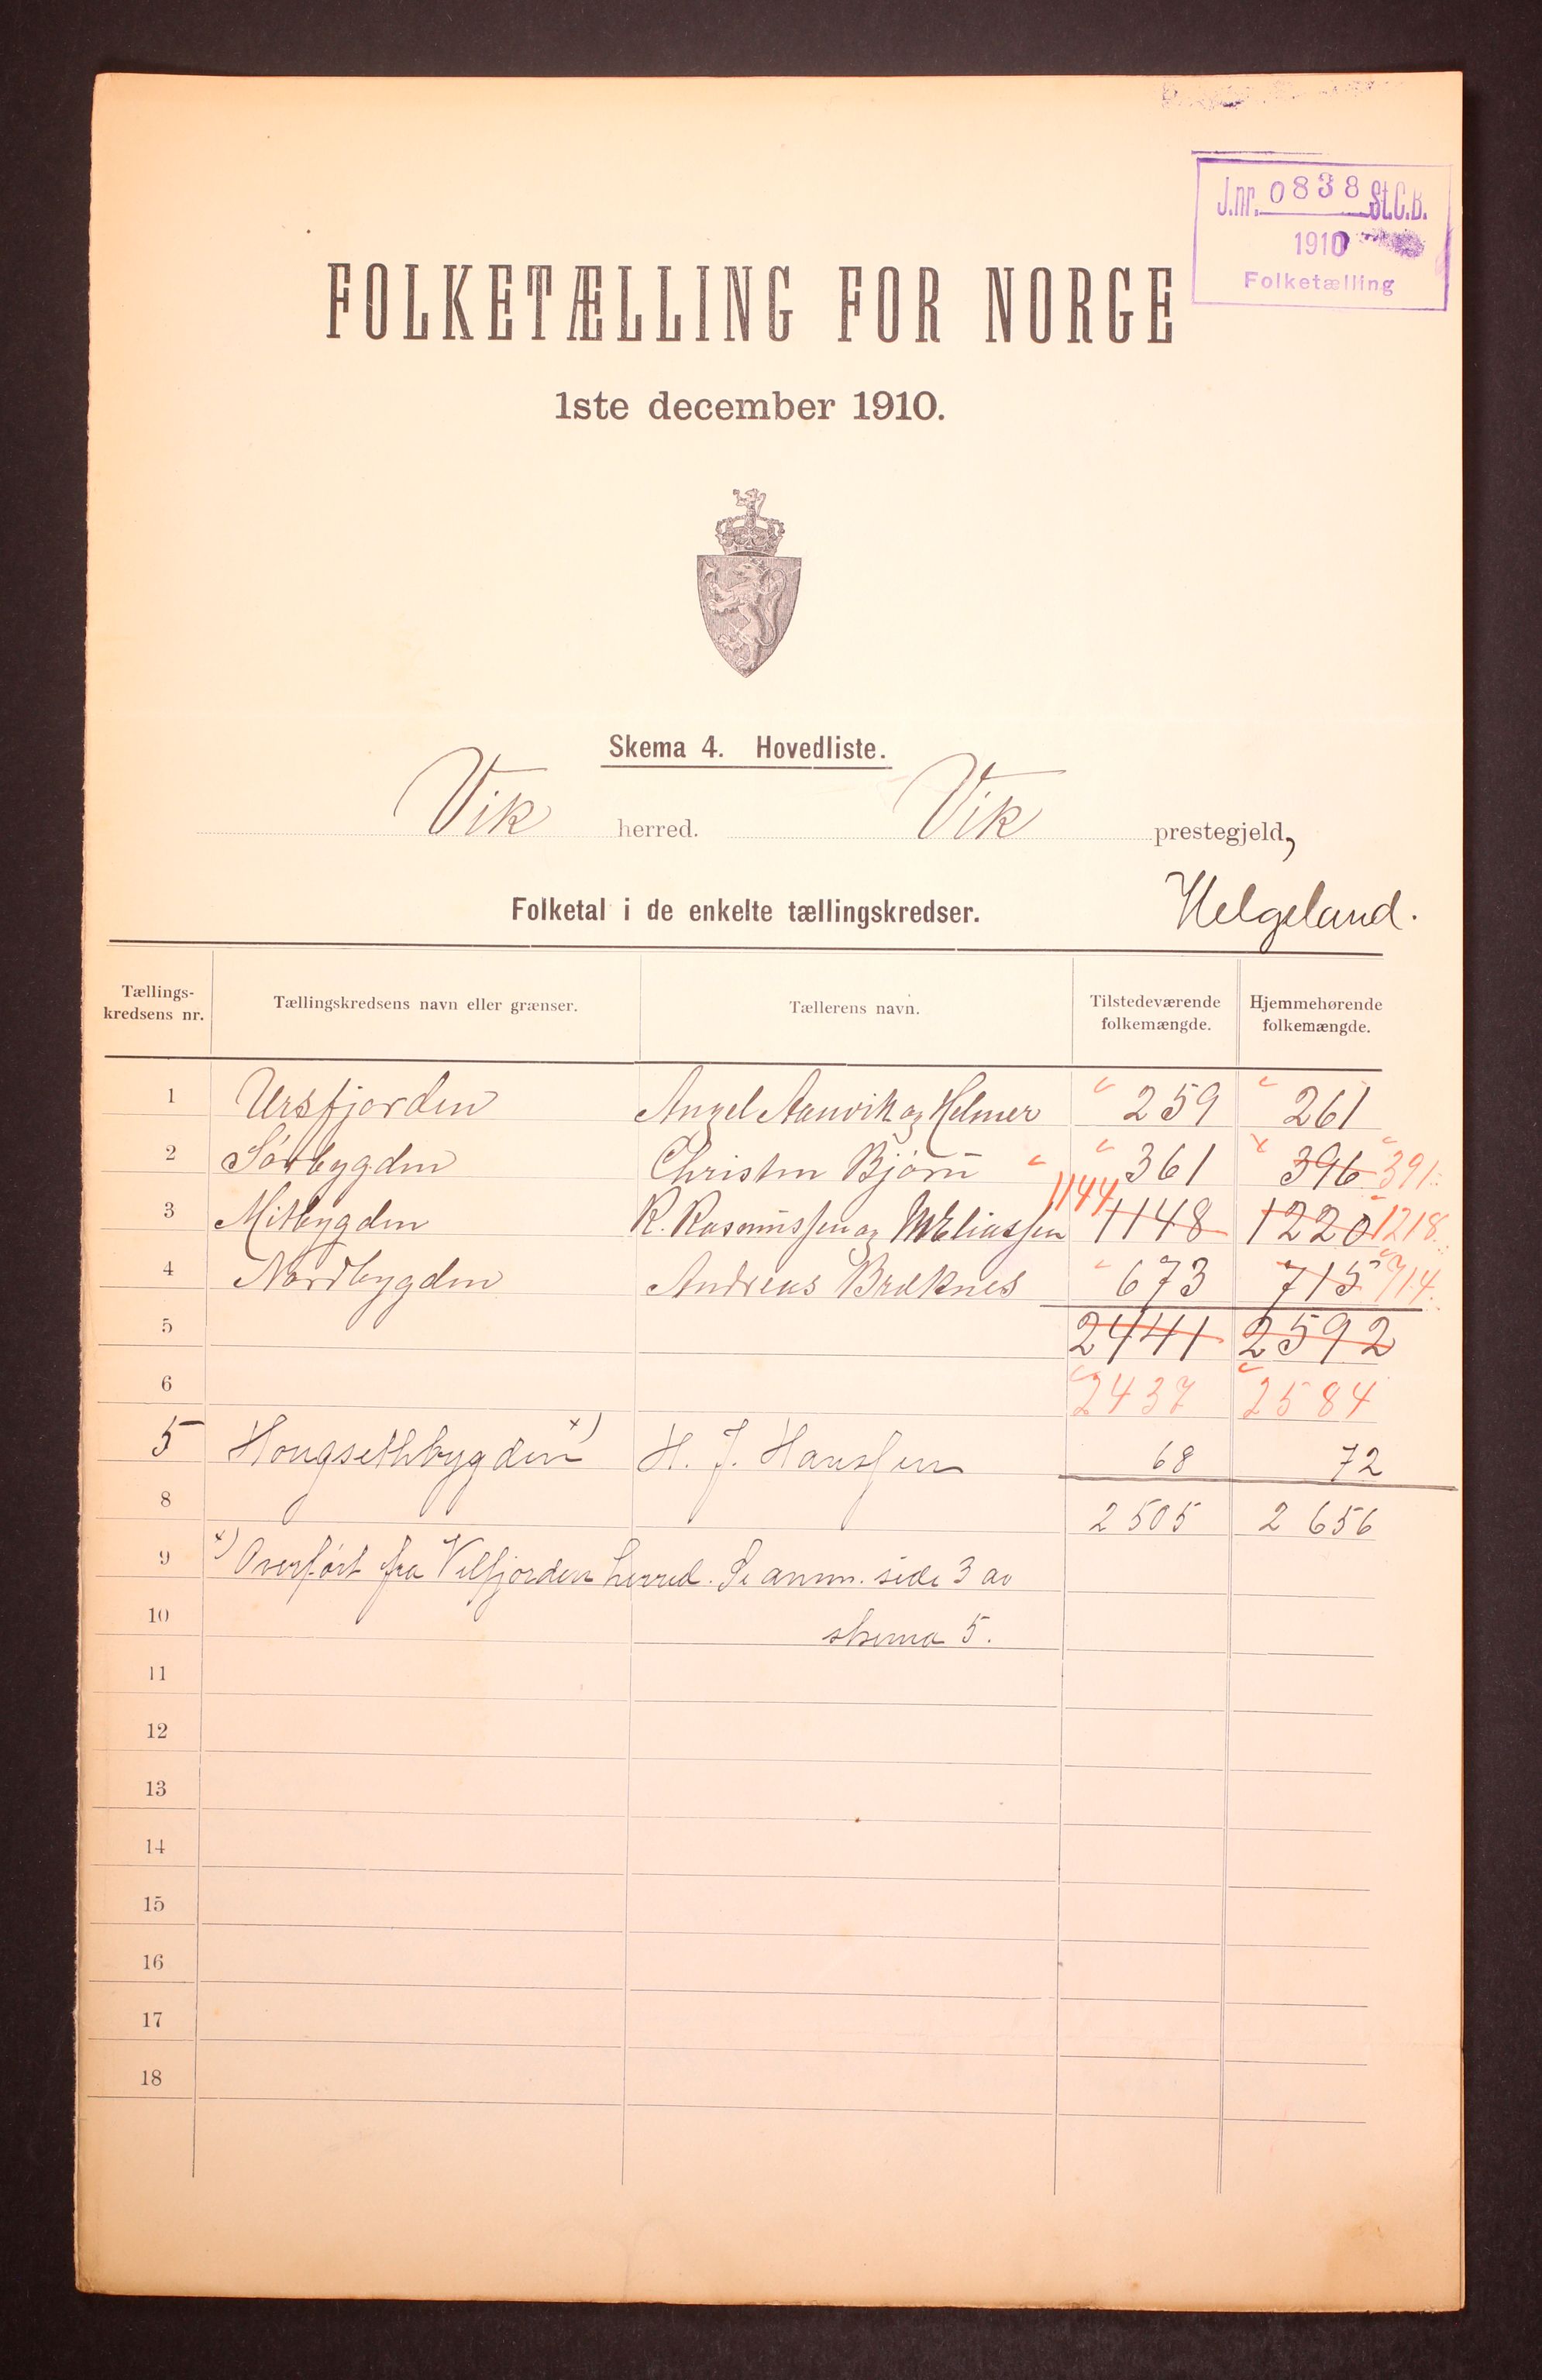 J.nr. 0838 St.C.B.
1910
Folketælling
FOLKETÆLLING FOR NORGE
1ste december 1910.
Skema 4. Hovedliste.
Vik herred. Vik prestegjeld,
Helgeland.
Folketal i de enkelte tællingskredser.
Tællings-kredsens nr. Tællingskredsens navn eller grænser. Tællerens navn. Tilstedeværende folkemængde. Hjemmehørende folkemængde.
1 Ursfjorden Angel Aanvik og Helmer 259 261
2 Sørbygden Christen Bjørn 361 396 391
3 Mitbygden R. Rasmussen og M Eliassen 1144 1148 1220 1218
4 Nordbygden Andreas Bræknes 673 715 714
5 2441 2592
6 2437 2584
5 Hongsethbygden x) H. J. Hanssen 68 72
8 2505 2656
9 x) Overført fra Velfjorden herred. Se anm. side 3 av
10 skema 5.
11
12
13
14
15
16
17
18